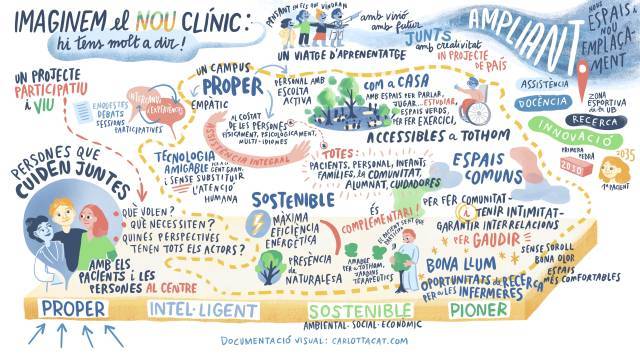 IMAGINEM el NOU CLÍNIC:
hi tens molt a dir!
PENSANT EN ELS QUE VINDRAN
amb visió
amb futur
JUNTS
amb creativitat
IN PROJECTE
de PAÍS
UN VIATGE D'APRENENTATGE
AMPLIANT
NOUS
ESPAIS
NOU
EMPLAÇA-
MENT
ASSISTÈNCIA
DOCÈNCIA
RECERCA
INNOVACIÓ
ZONA
ESPORTIVA
de la UB
PRIMERA
PEDRA
2030
2035
1r PACIENT
UN PROJECTE
PARTICIPATIU
i VIU
ENQUESTES
DEBATS
SESSIONS
PARTICIPATIVES
INTERCANVI
d'EXPERIÈNCIES
UN CAMPUS
PROPER
EMPÀTIC
PERSONAL AMB
ESCOLTA
ACTIVA
AL COSTAT
DE LES PERSONES
FÍSICAMENT, PSICOLÒGICAMENT,
MULTI-IDIOMES
ASSISTÈNCIA INTEGRAL
com a CASA
AMB ESPAIS PER PARLAR,
JUGAR... ESTUDIAR,
ESPAIS VERDS,
PER FER EXERCICI,
ACCESSIBLES A TOTHOM
TECNOLOGIA
AMIGABLE
i SENSE SUBSTITUIR
L'ATENCIÓ
HUMANA
a TOTES:
PACIENTS, PERSONAL, INFANTS,
FAMÍLIES, la COMUNITAT,
ALUMNAT, CUIDADORS
ESPAIS
COMUNS
PER FER COMUNITAT
i TENIR INTIMITAT
GARANTIR INTERRELACIONS
* PER GAUDIR *
SENSE SOROLL
BONA OLOR
ESPAIS
MÉS CONFORTABLES
BONA LLUM
OPORTUNITATS de RECERCA
PER a LES INFERMERES
PERSONES QUE
CUIDEN JUNTES
QUÈ VOLEN?
QUÈ NECESSITEN?
QUINES PERSPECTIVES
TENEN TOTS ELS ACTORS?
AMB ELS
PACIENTS i LES
PERSONES AL CENTRE
SOSTENIBLE
MÀXIMA
EFICIÈNCIA
ENERGÈTICA
PRESÈNCIA
de NATURALESA
ÉS
COMPLEMENTARI!
AMABLE
PER a TOTHOM,
JARDINS
TERAPÈUTICS
PROPER
INTEL·LIGENT
SOSTENIBLE
PIONER
AMBIENTAL·SOCIAL·ECONÒMIC
DOCUMENTACIÓ VISUAL: CARLOTTACAT.COM